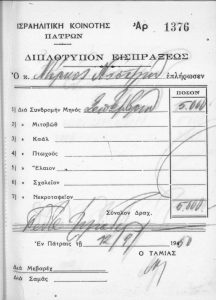 ΙΣΡΑΗΛΙΤΙΚΗ ΚΟΙΝΟΤΗΣ
ΠΑΤΡΩΝ
Ἀρ. 1376
ΔΙΠΛΟΤΥΠΟΝ ΕΙΣΠΡΑΞΕΩΣ
Ὁ κ. ἐπλήρωσεν
ΠΟΣΟΝ
1) Διὰ Συνδρομὴν Μηνὸς 5.000
2) » Μιτσβὼθ
3) » Καὰλ
4) » Πτωχοὺς
5) » Ἔλαιον
6) » Σχολεῖον
7) » Νεκροταφεῖον
Σύνολον Δραχ. 5.000
Ἐν Πάτραις τῇ 12/9/1950
Ο ΤΑΜΙΑΣ
Διὰ Μεβαρὲχ
Διὰ Σαμὰς